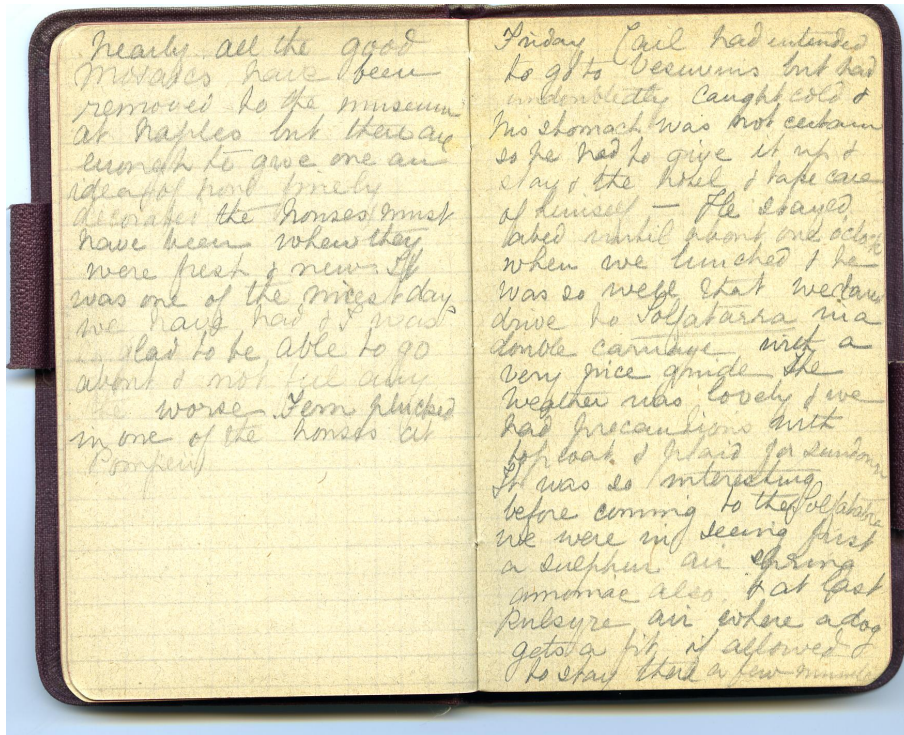 Nearly all the good
Mosaics have been
removed to the museum
at Naples but there are
enough to give one an
idea of how finely
decorated the houses must
have been when they
were fresh & new. It
was one of the nicest day
we have had & I was
glad to be able to go
about & not feel any
the worse. Fern plucked
in one of the houses at
Pompeii
Friday Carl had intended
to go to Vesuvius but had
undoubtedly caught cold &
his stomach was not certain
so he had to give it up &
stay & the hotel & take care
of himself — He stayed
abed until about one oclock
when we lunched & he
was so well that we
drive to Solfatarra in a
double carriage with a
very nice guide The
weather was lovely & we
had precautions with
topcoat & plaid for sundown
It was so interesting
before coming to the Solfatarra
we were in seeing first
a sulphur air spring
amoniac also & at last
Kulsyre air where a dog
gets a fit if allowed
to stay there a few minutes